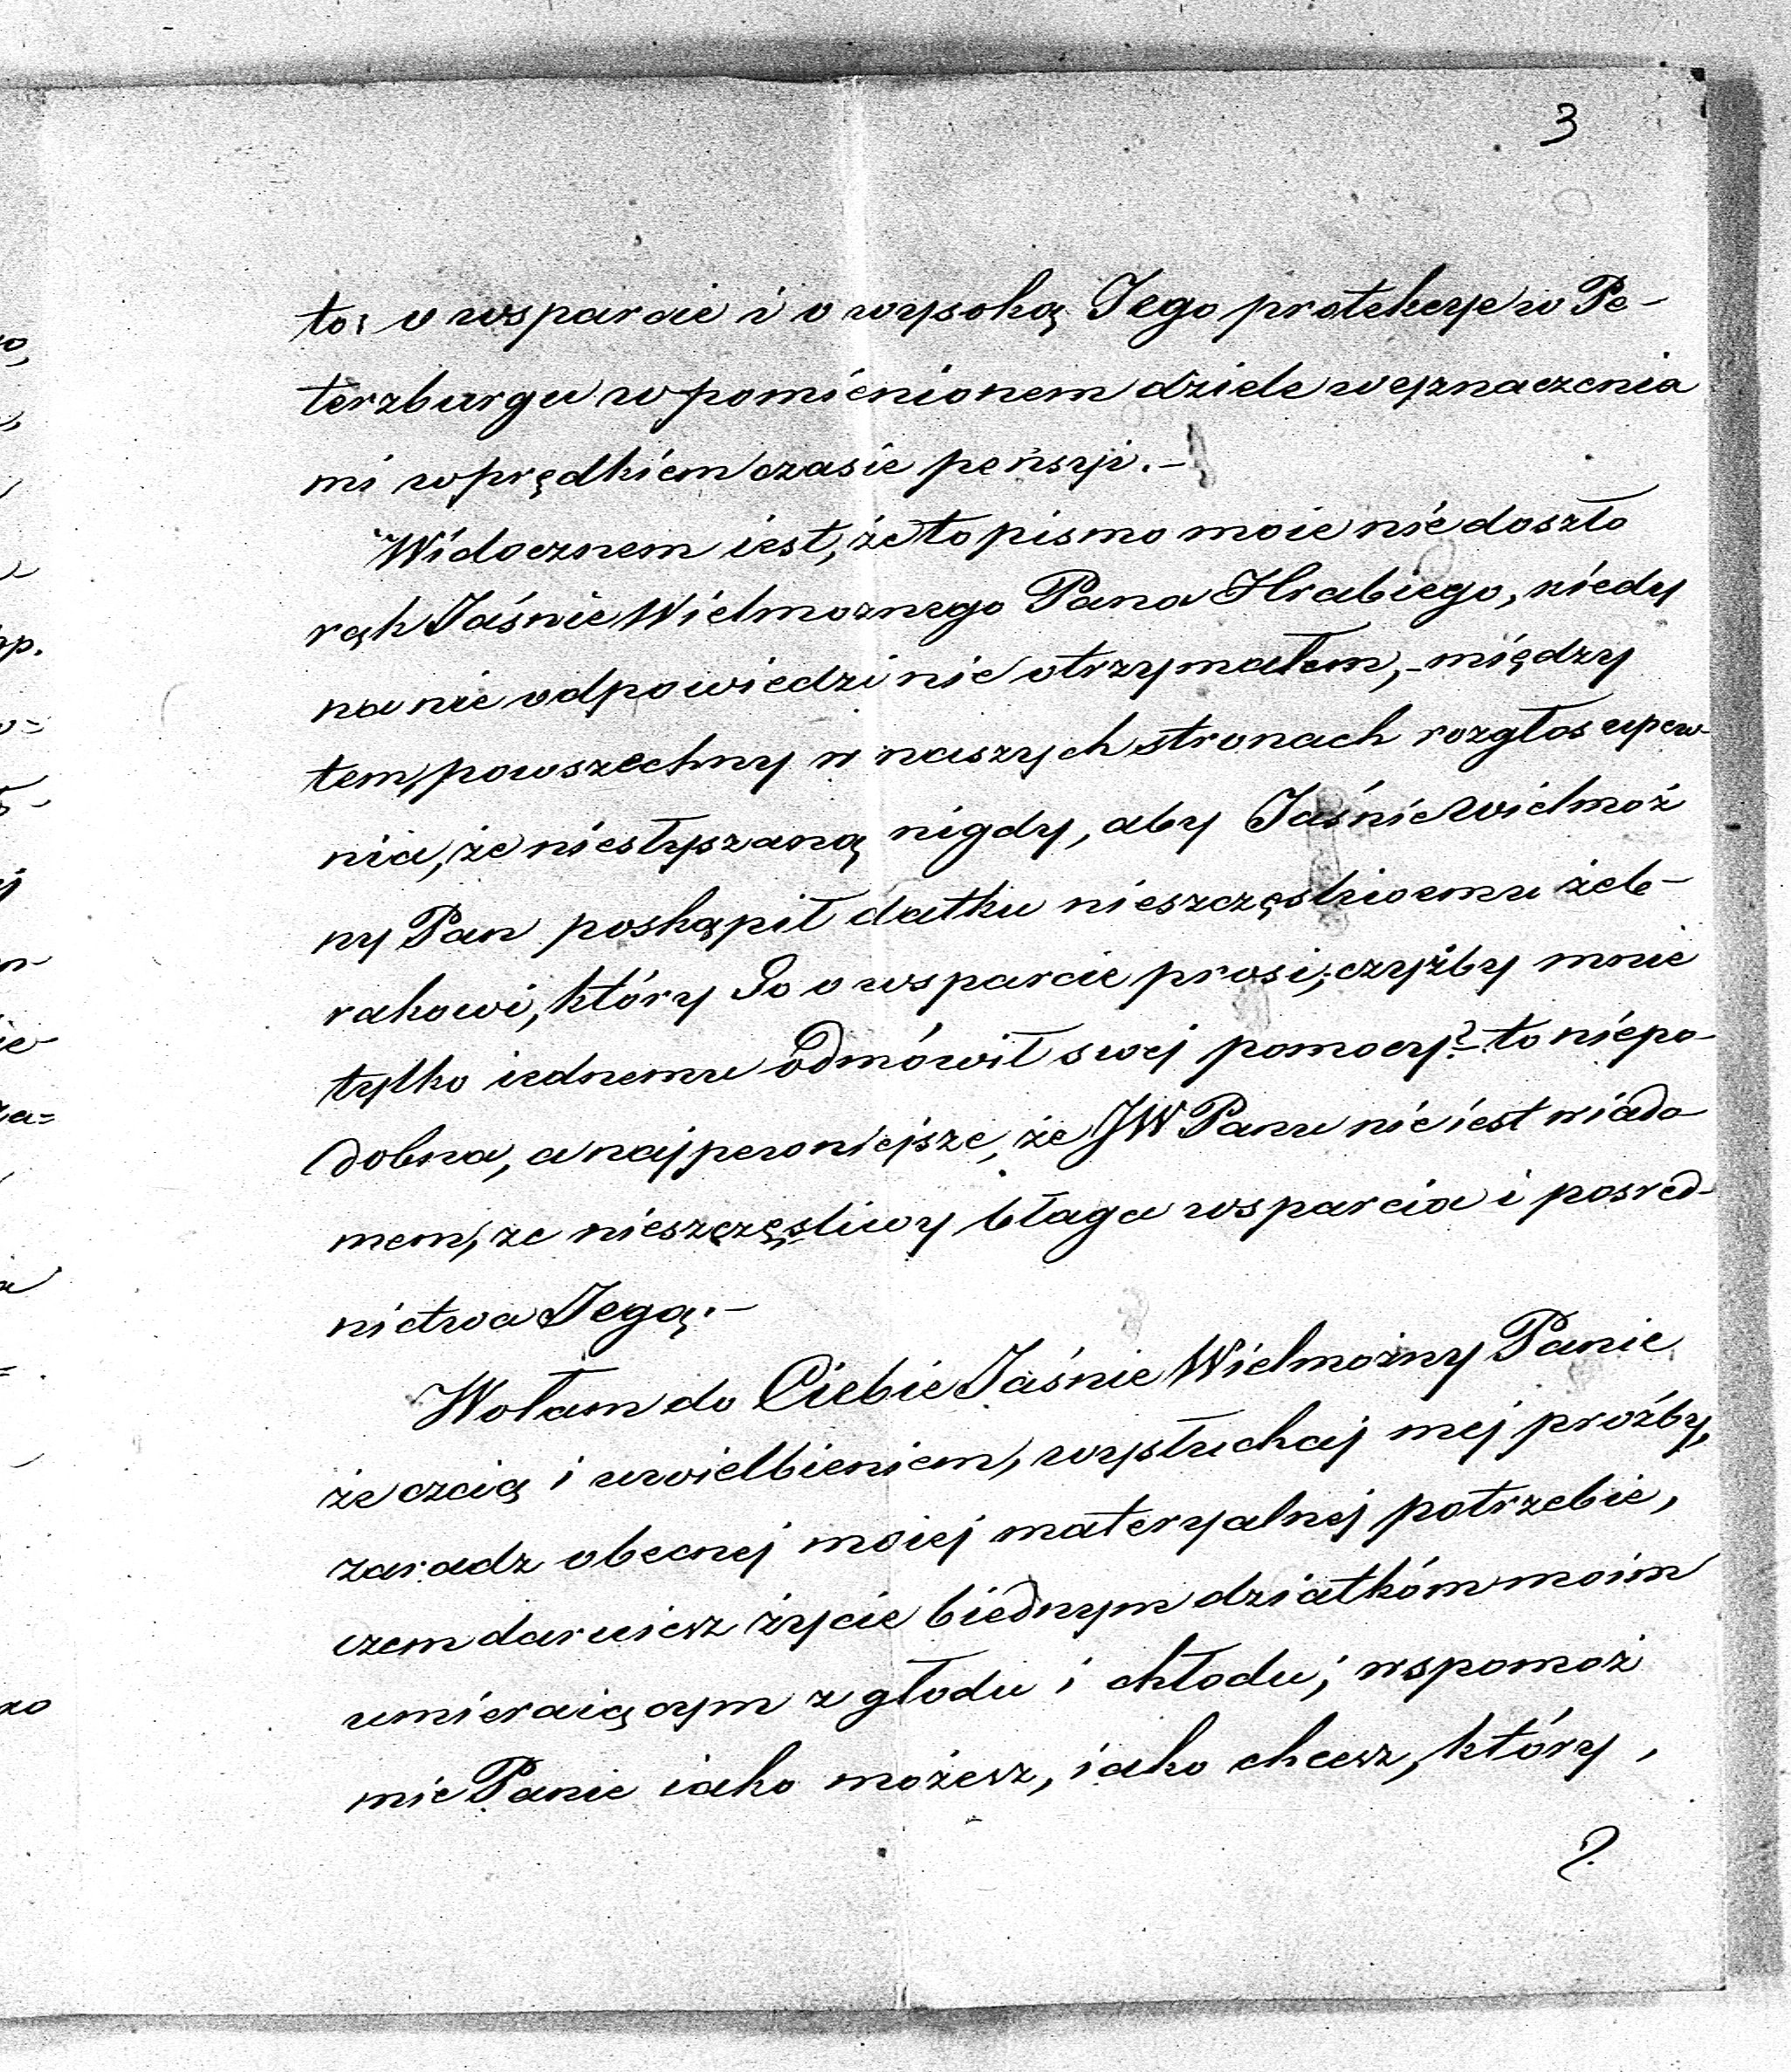 3
to, o wsparcie i o wysoką Jego protekcye w Pe-
terzburgu w pomienionem dziele wyznaczenia
mi w prędkiem czasie pensyi.-
Widocznem iest, że to pismo moie nie doszło
rąk Jaśnie Wielmożnego Pana Hrabiego, kiedy
na nie odpowiedzi nie otrzymałem,- między
tem, powszechny w naszych stronach rozgłos upew-
nia, że niesłyszaną nigdy, aby Jaśnie Wielmoż
ny Pan poskąpił datku nieszczęsliwemu żeb-
rakowi, który Go o wsparcie prosi, czyżby mnie
tylko iednemu odmówił swej pomocy?- to niepo-
dobna, a najpewniejsze, że JW Panu nie iest wiado-
mem, ze nieszczęsliwy błaga wsparcia i posred-
nictwa Jego.-
Wołam do Ciebie Jaśnie Wielmożny Panie
ze czcią i uwielbieniem, wysłuchaj mej proźby,
zaradz obecnej moiej materyalnej potrzebie,
czem daruiesz życie biednym dziatkóm moim
umieraiącym z głodu i chłodu; wspomoż
mie Panie iako możesz, iako chcesz, który,